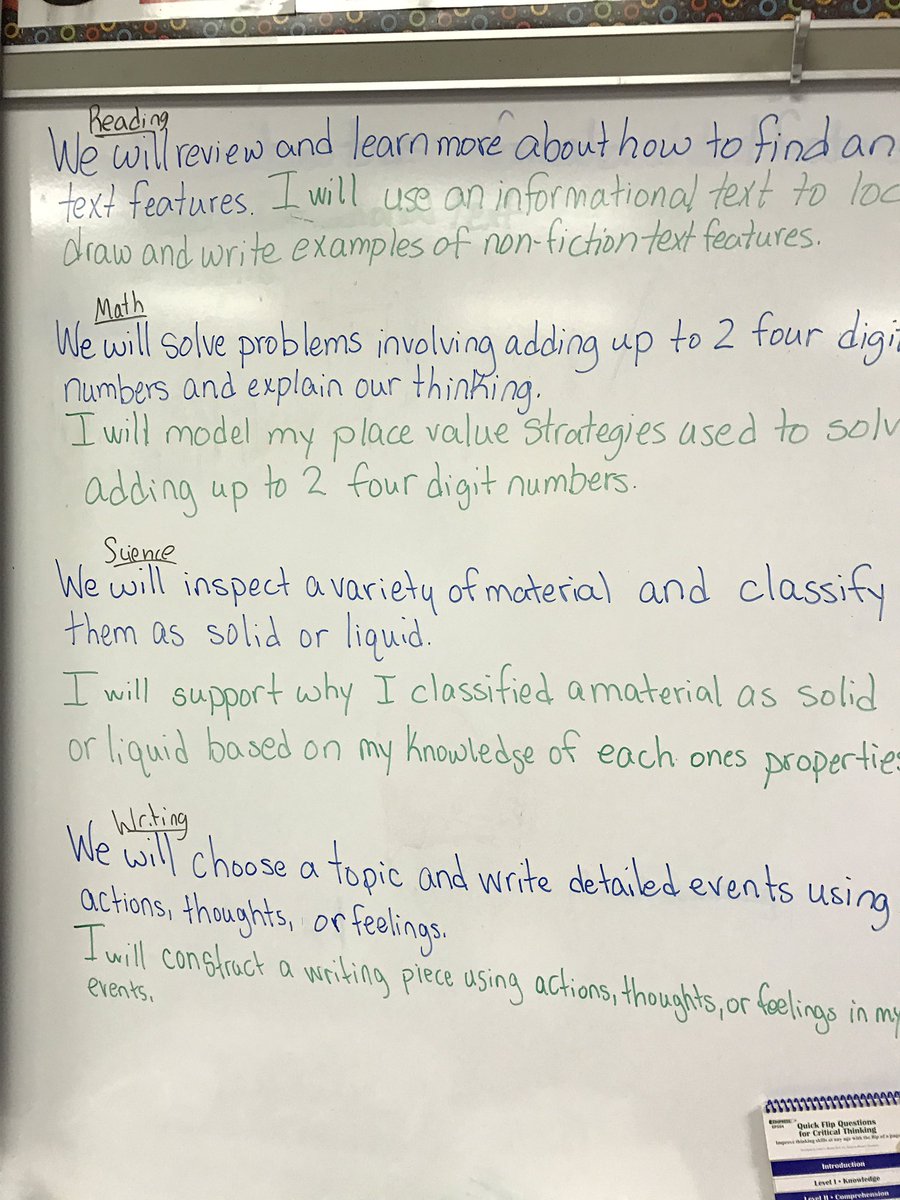 Reading
We will review and learn more about how to find an
text features. I will use an informational text to loc
draw and write examples of non-fiction text features.
Math
We will solve problems involving adding up to 2 four digit
numbers and explain our thinking.
I will model my place value strategies used to solv
adding up to 2 four digit numbers.
Science
We will inspect a variety of material and classify
them as solid or liquid.
I will support why I classified a material as solid
or liquid based on my knowledge of each ones properties
Writing
We will choose a topic and write detailed events using
actions, thoughts, or feelings.
I will construct a writing piece using actions, thoughts, or feelings in my
events.
Quick Flip Questions
for Critical Thinking
Improve thinking skills at any age with the flip of a page
Introduction
Level I • Knowledge
Level II • Comprehension